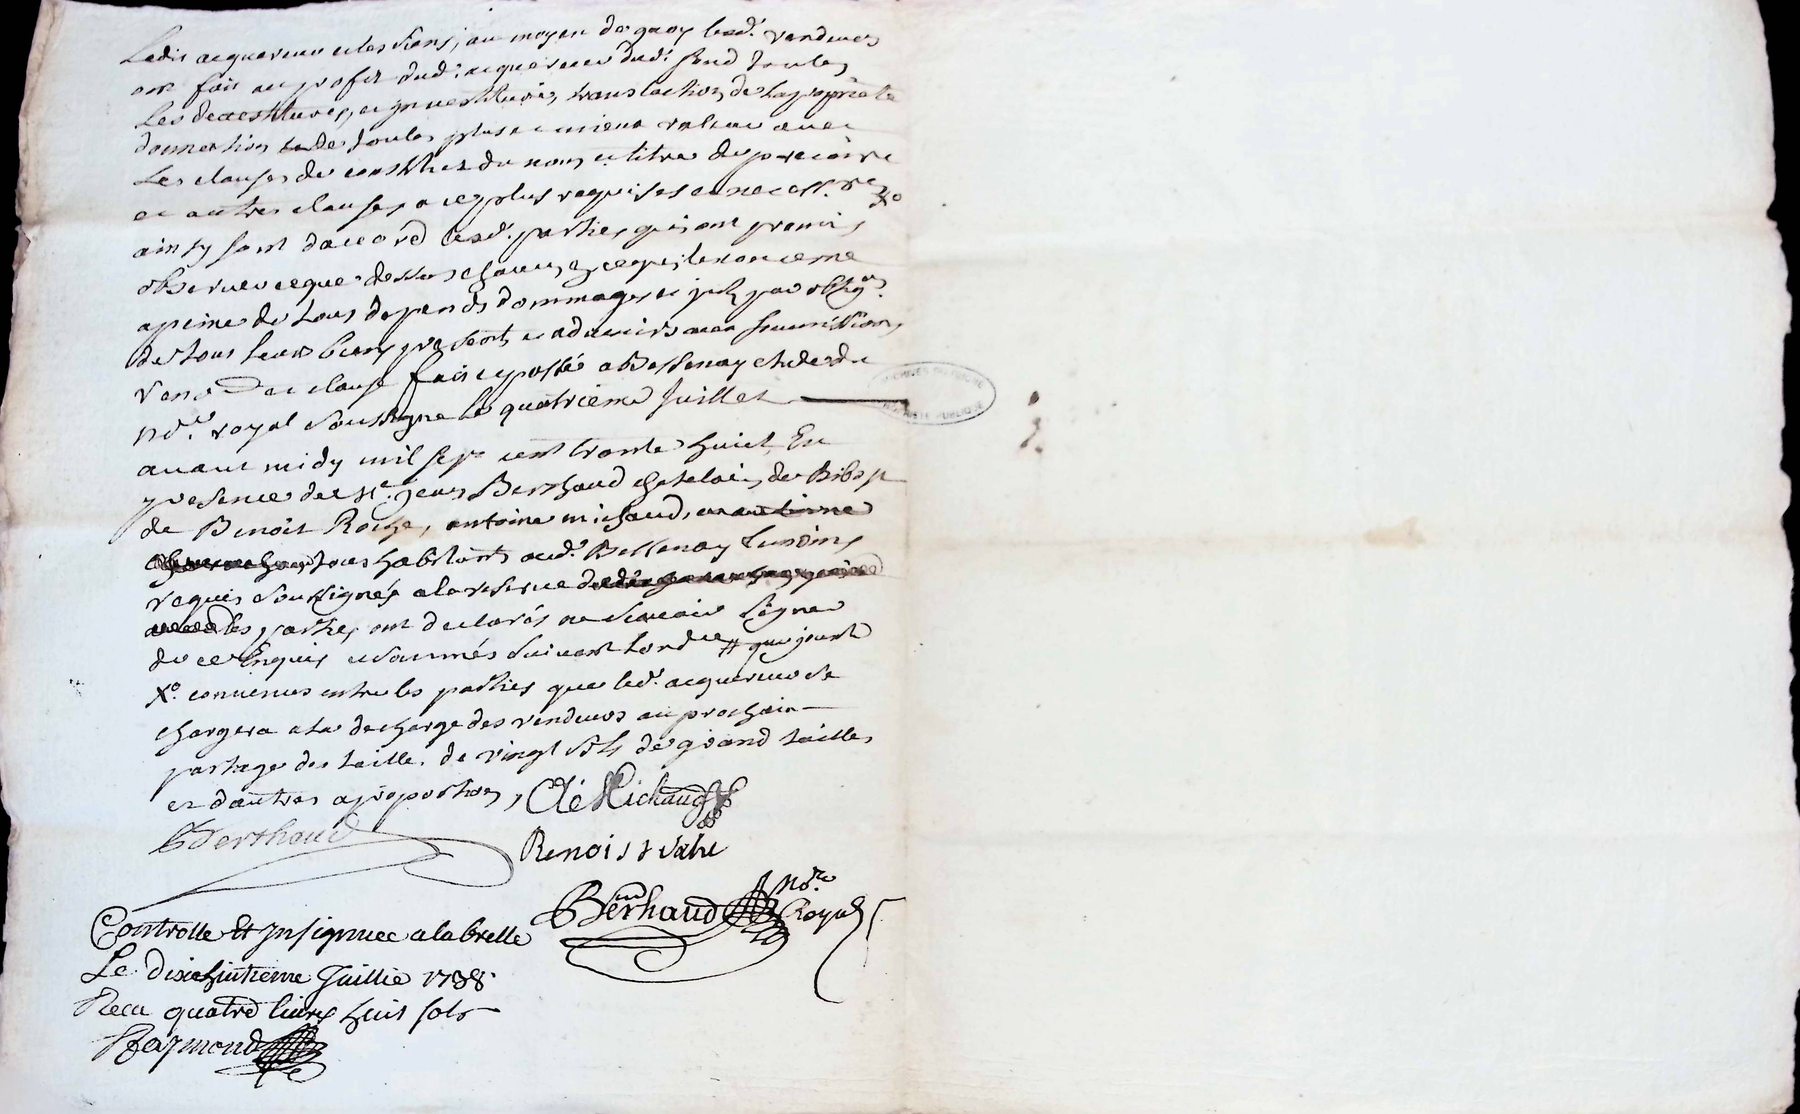 Ledit acquereur et les siens, au moyen de quoy lesd. vendeurs
ont fait au profit dud. acquereur dud. fond toutes
les devestitures, et jnvestitures, translation de la proprieté
donnation de toutes plus et mieux value avec
les clauses de constitut du nom et titre de precaire
et autres clauses a ce plus requises et necess.res X°
ainsy sont d'accord lesd. parties qui ont promis
observer ce que dessus chacun en ce qui le concerne
a peine de tous depends dommages et jnts par oblig.on
de tous leurs biens presents et advenirs avec soumissions
renon. et clause fait et passé a Bessenay etude du
no.re royal soussigné le quatrieme Juillet
avant midy mil sept cent trente huict, En
presence de Sr. jean Berthaud chatelain de Bibost
de Benoit Roche, antoine michaud,
tous habitants aud. Bessenay temoins
requis soussignés a la reserve
les parties ont declarés ne scavoir signer
de ce Enquis et sommés suivant l'ord.ce
X°. convenus entre les parties que led. acquereur se
chargera a la decharge des vendeurs au prochain
partage des tailles de vingt sols de grand tailles
et d'autres a proportion,
Michaud
Berthaud
Benoist
Berthaud no.re Royal
Controlle Et Jnsignuee a la brelle
Le dixehuitieme Juillie 1738
Recu quatre livres huit sols
Raymond